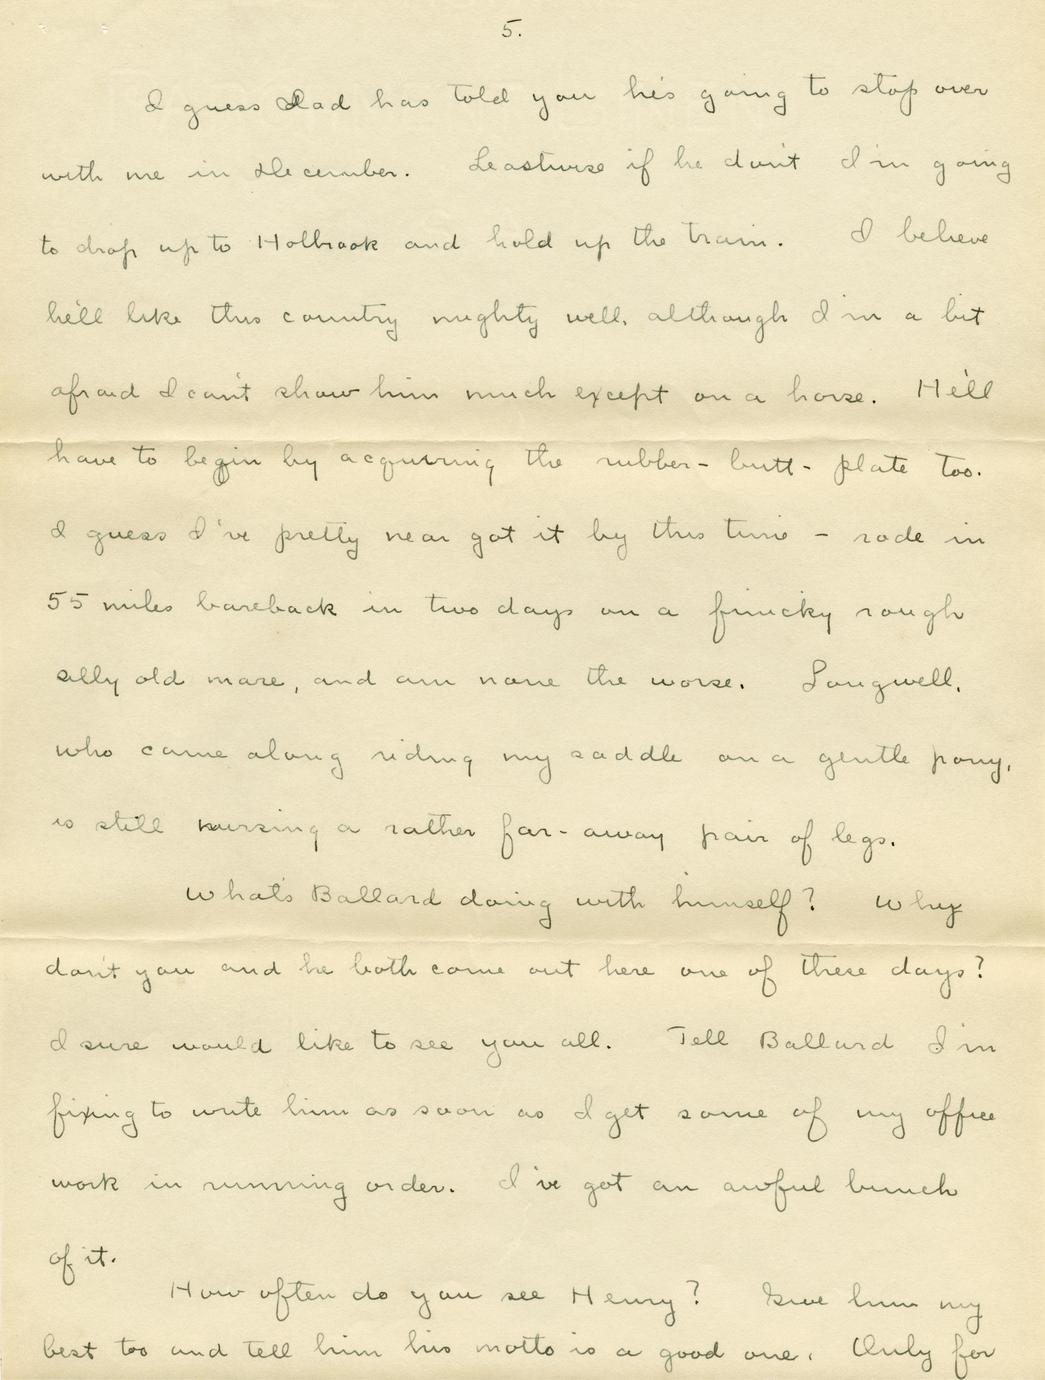 5.
I guess Dad has told you he's going to stop over
with me in December. Leastwise if he don't I'm going
to drop up to Holbrook and hold up the train. I believe
he'll like this country mighty well, although I'm a bit
afraid I can't show him much except on a horse. He'll
have to begin by acquiring the rubber-butt-plate too.
I guess I've pretty near got it by this time - rode in
55 miles bareback in two days on a finicky rough
silly old mare, and am none the worse. Longwell,
who came along riding my saddle on a gentle pony,
is still nursing a rather far-away pair of legs.
What's Ballard doing with himself? Why
don't you and he both come out here one of these days?
I sure would like to see you all. Tell Ballard I'm
fixing to write him as soon as I get some of my office
work in running order. I've got an awful bunch
of it.
How often do you see Henry? Give him my
best too and tell him his motto is a good one. Only for